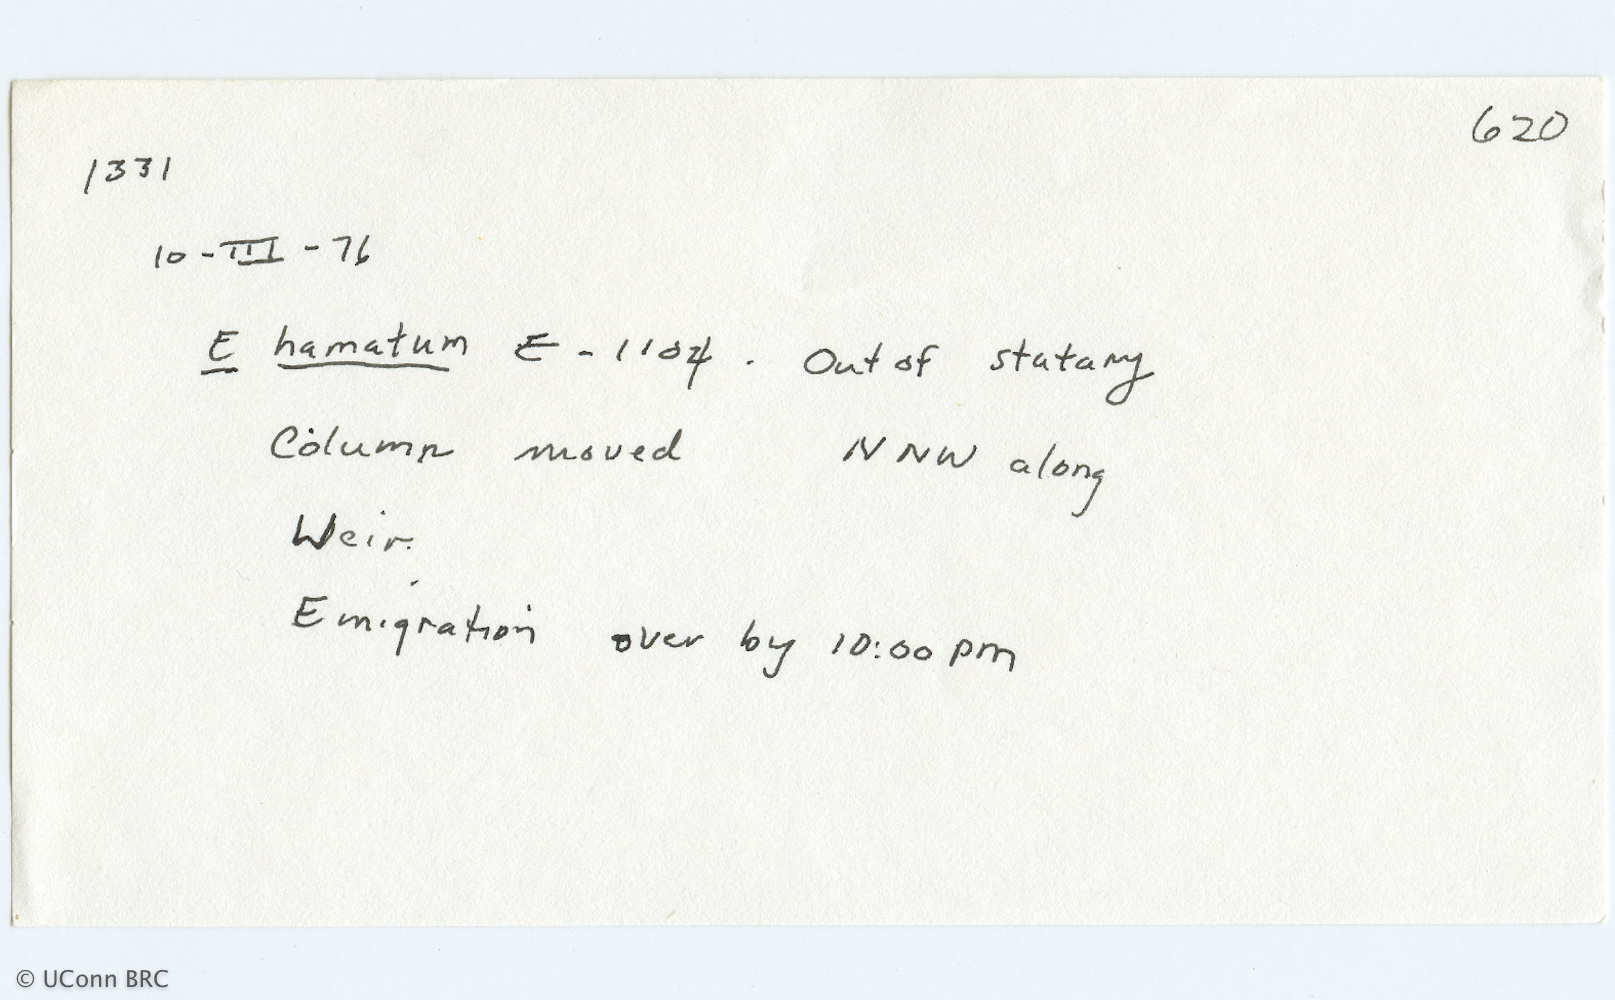 620
1331
10-III-76
E hamatum E-1104. Out of statary
Column moved NNW along
Weir.
Emigration over by 10:00 pm
© UConn BRC